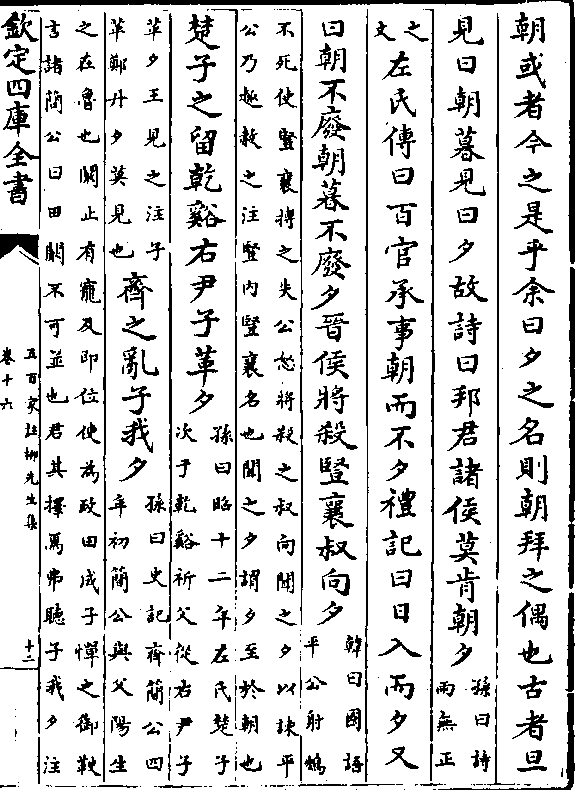 朝或者今之是乎余曰夕之名則朝拜之偶也古者旦
見曰朝暮見曰夕故詩曰邦君諸侯莫肯朝夕孫曰詩
雨無正
之
文
左氏傳曰百官承事朝而不夕禮記曰日入而夕又
曰朝不廢朝暮不廢夕晉侯將殺豎襄叔向夕韓曰國語
平公射鴳
不死使豎襄搏之失公怒將殺之叔向聞之夕以諫平
公乃趣赦之注豎内豎襄名也聞之夕謂夕至於朝也
楚子之留乾谿右尹子革夕孫曰昭十二年左氏楚子
次于乾谿祈父從右尹子
革夕王見之注子
革鄭丹夕莫見也
齊之亂子我夕孫曰史記齊簡公四
年初簡公與父陽生
之在魯也闞止有寵及即位使為政田成子憚之御鞅
言諸簡公曰田闞不可並也君其擇焉弗聽子我夕注
欽定四庫全書
五百家註柳先生集
卷十六
十二